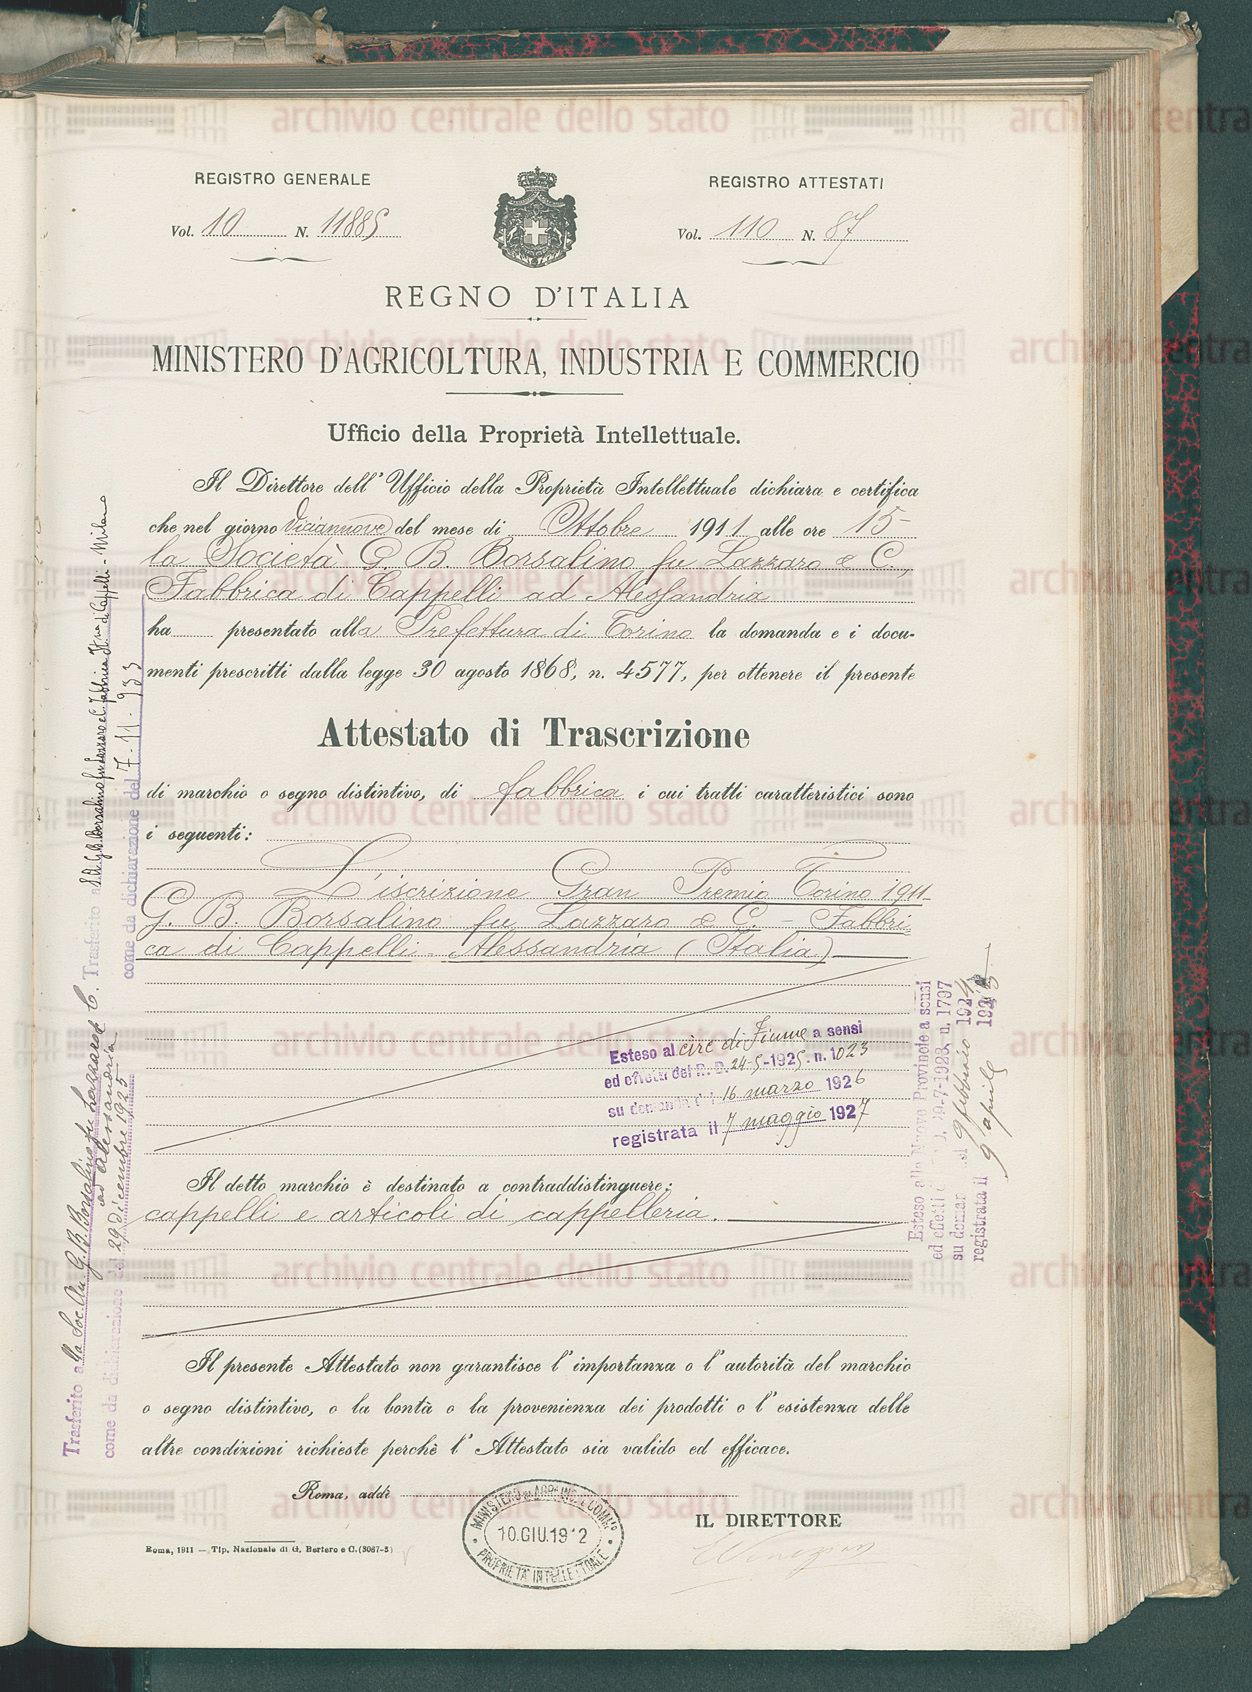 REGISTRO GENERALE
Vol. 10 N. 11885
REGISTRO ATTESTATI
Vol. 110 N. 87
REGNO D'ITALIA
MINISTERO D'AGRICOLTURA, INDUSTRIA E COMMERCIO
Ufficio della Proprietà Intellettuale.
Il Direttore dell'Ufficio della Proprietà Intellettuale dichiara e certifica
che nel giorno diciannove del mese di Ottobre 1911 alle ore 15
la Società G. B. Borsalino fu Lazzaro & C.,
Fabbrica di Cappelli ad Alessandria
ha presentato alla Prefettura di Torino la domanda e i docu-
menti prescritti dalla legge 30 agosto 1868, n. 4577, per ottenere il presente
Attestato di Trascrizione
di marchio o segno distintivo, di fabbrica i cui tratti caratteristici sono
i seguenti:
L'iscrizione Gran Premio Torino 1911
G. B. Borsalino fu Lazzaro & C. - Fabbri
ca di Cappelli - Alessandria (Italia)
Esteso al circ di Fiume a sensi
ed effetti del R. D. 24-5-1925. n. 1023
su domanda del 16 marzo 1926
registrata il 7 maggio 1927
Il detto marchio è destinato a contraddistinguere:
cappelli e articoli di cappelleria.
Il presente Attestato non garantisce l'importanza o l'autorità del marchio
o segno distintivo, o la bontà o la provenienza dei prodotti o l'esistenza delle
altre condizioni richieste perchè l'Attestato sia valido ed efficace.
Roma, addì
MINISTERO DI AGR. IND. E COMM.
10.GIU.1912
PROPRIETÀ INTELLETTUALE
IL DIRETTORE
Roma, 1911 — Tip. Nazionale di G. Bertero e C. (3067-3)
Trasferito alla Soc. An. G. B. Borsalino fu Lazzaro & C.
ad Alessandria
come da dichiarazione del 29 dicembre 1925
Trasferito a S.A. G.B. Borsalino fu Lazzaro e C. Fabbrica It. di Cappelli - Milano
come da dichiarazione del 7-11-933
Esteso alle Nuove Provincie a sensi
ed effetti 1923, n. 1797
su doman 9 febbraio 1924
registrata il 9 aprile 192
archivio centrale dello stato